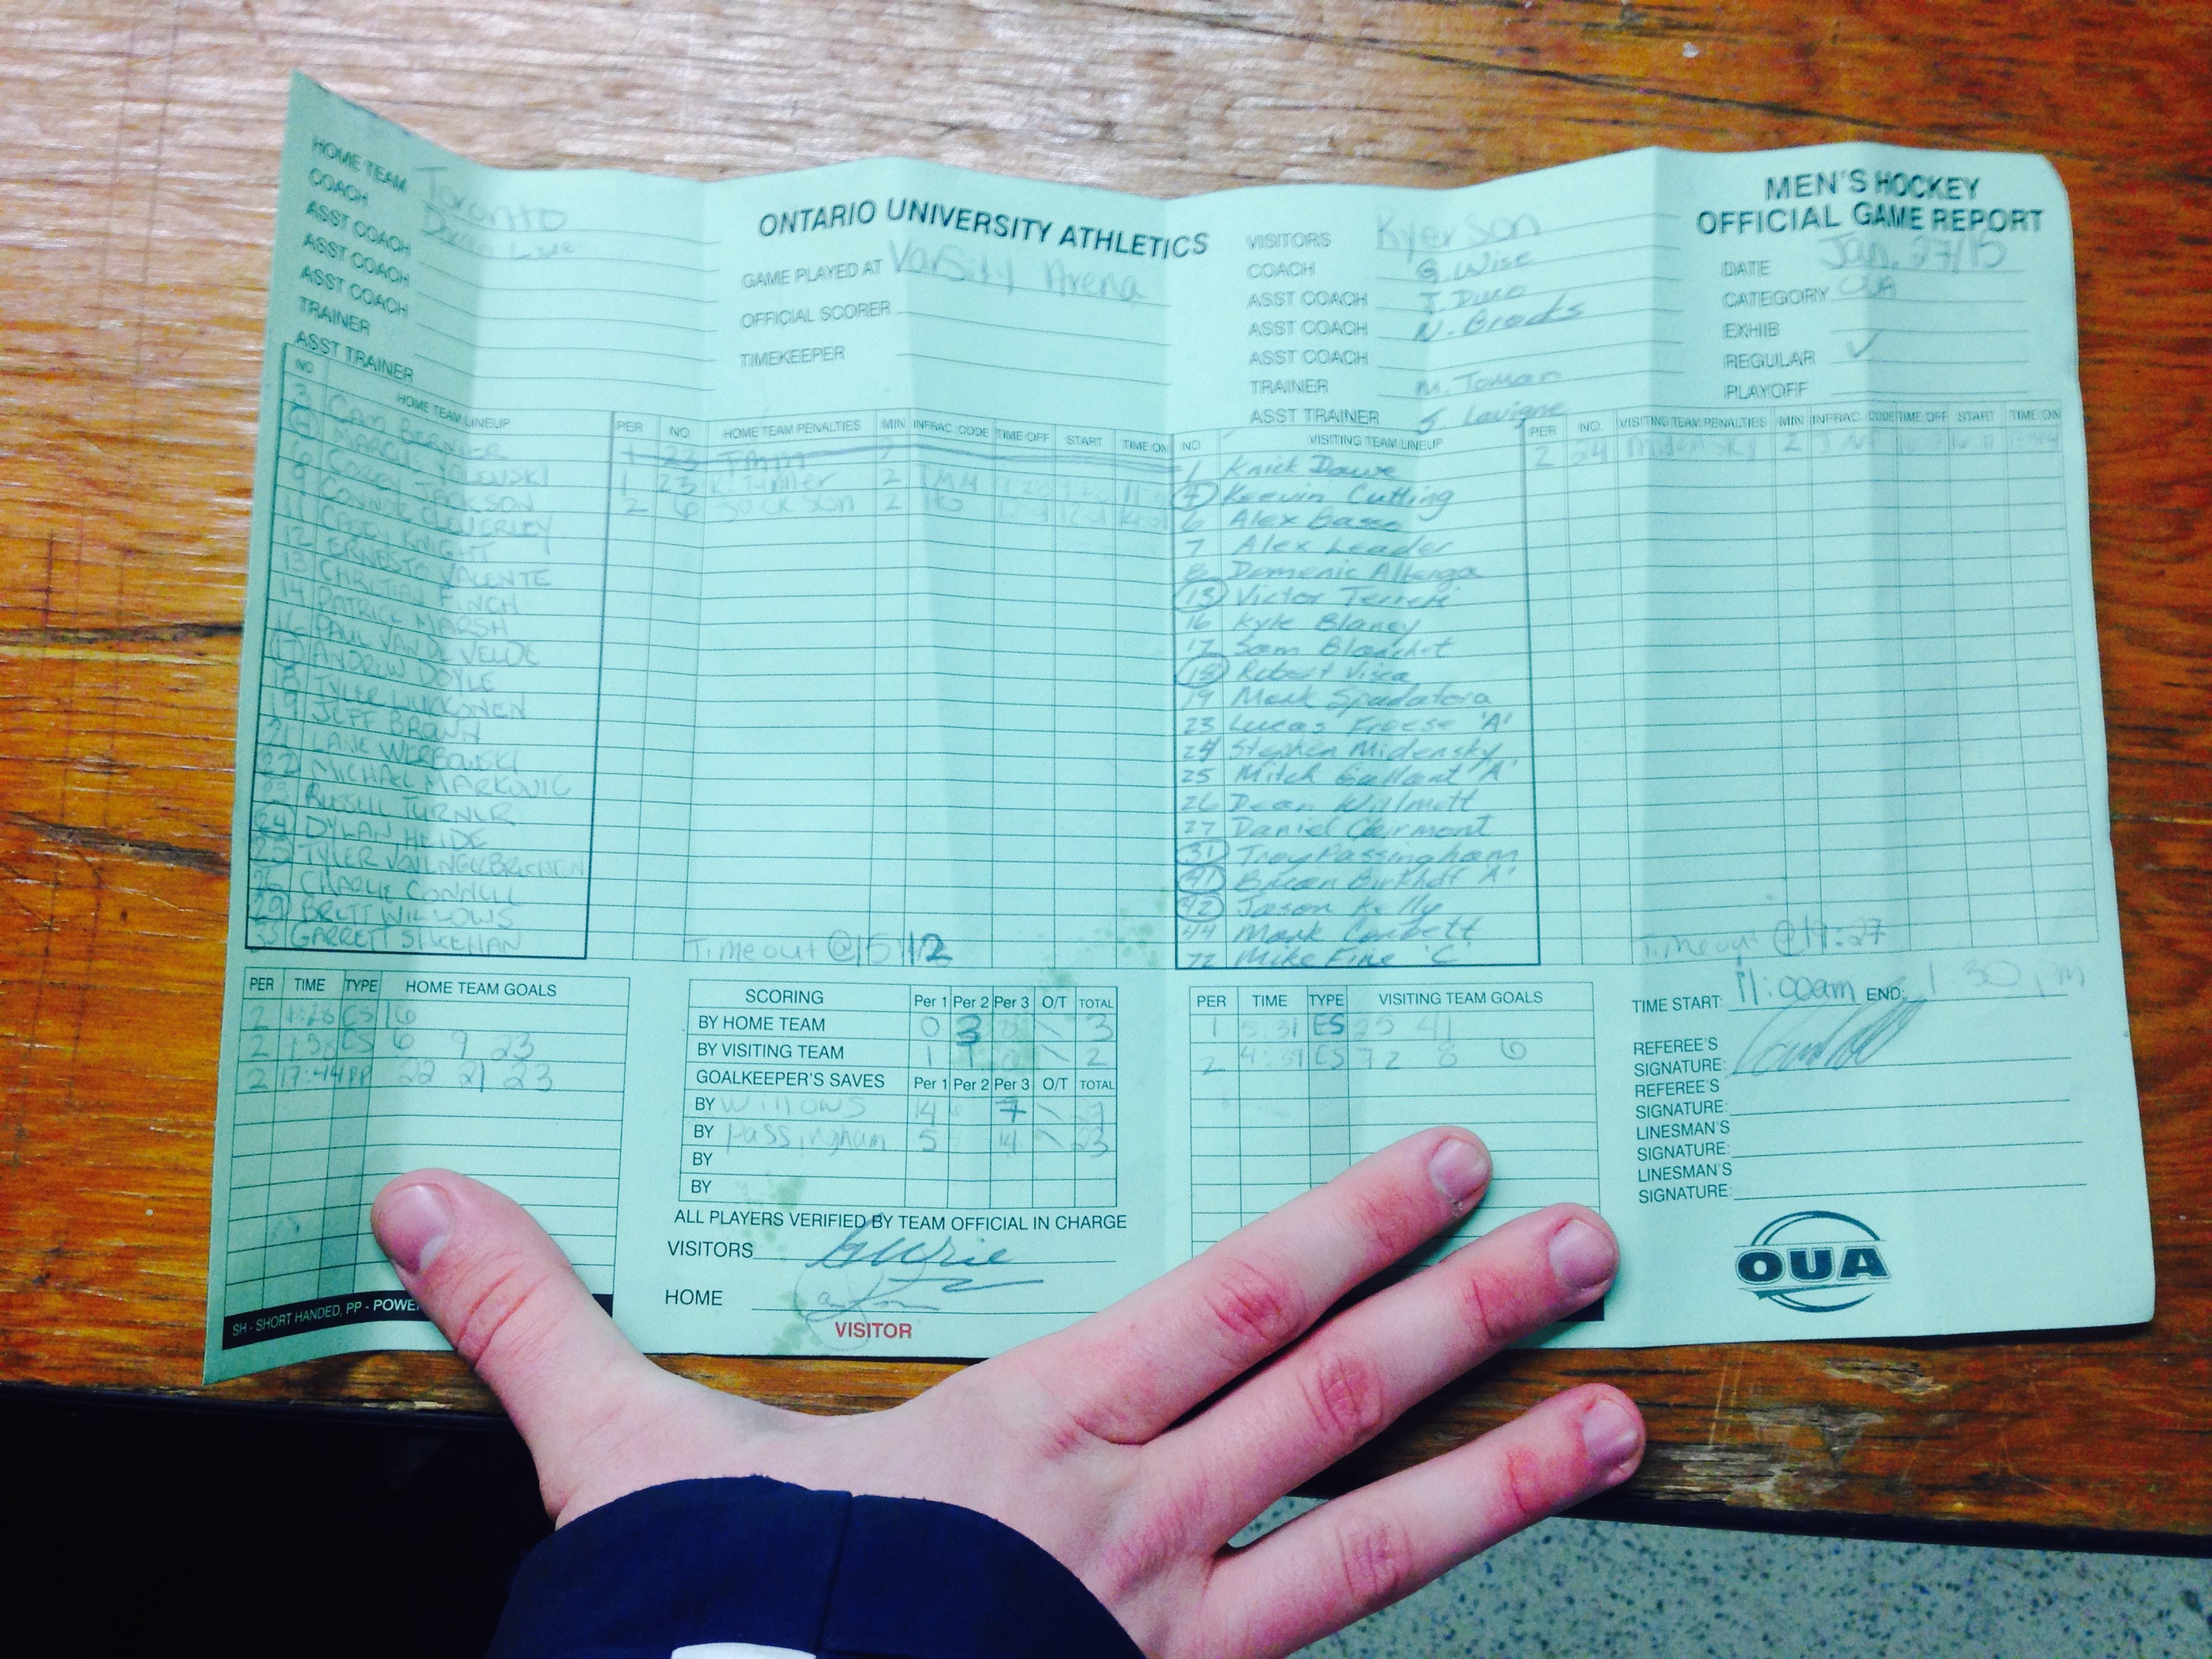 HOME TEAM Toronto
COACH
ASST COACH
ASST COACH
ASST COACH
TRAINER
ASST TRAINER
ONTARIO UNIVERSITY ATHLETICS
GAME PLAYED AT Varsity Arena
OFFICIAL SCORER
TIMEKEEPER
VISITORS Ryerson
COACH G. Wise
ASST COACH J. Duco
ASST COACH N. Brooks
ASST COACH
TRAINER M. Toman
ASST TRAINER S. Lavigne
MEN'S HOCKEY
OFFICIAL GAME REPORT
DATE Jan. 27/15
CATEGORY OUA
EXHIB
REGULAR ✓
PLAYOFF
NO HOME TEAM LINEUP
3 CAM BERNIER
MARCUS
6 COREY JACKSON
8 CONNOR CLOVERLEY
11 CASEY KNIGHT
12 ERNESTO VALENTE
13 CHRISTIAN FINCH
14 PATRICK MARSH
16 PAUL VAN DE VELDE
17 ANDREW DOYLE
18 TYLER LIUKKONEN
19 JEFF BROWN
21 LANE WERBOWSKI
22 MICHAEL MARKOVIC
23 RUSSELL TURNER
24 DYLAN HEIDE
25 TYLER
26 CHARLIE CONNELL
29 BRETT WILLOWS
GARRETT SHEEHAN
PER NO. HOME TEAM PENALTIES MIN INFRAC. CODE TIME OFF START TIME ON
1 23
1 23 R. Turner 2
2 6 Jackson 2
Timeout @ 15:12
NO. VISITING TEAM LINEUP
1 Knick Dawe
4 Keevin Cutting
6 Alex Basso
7 Alex Leader
8 Domenic Alberga
13 Victor Terreri
16 Kyle Blaney
17 Sam Blanchet
Robert Visca
19 Mark Spadafora
23 Lucas Froese 'A'
24 Stephen Midensky
25 Mitch Gallant 'A'
26 Dean Willmott
27 Daniel Clairmont
31 Troy Passingham
41 Brian Birkhoff 'A'
42 Jason Kelly
44 Mark Corbett
72 Mike Fine 'C'
PER NO. VISITING TEAM PENALTIES MIN INFRAC. CODE TIME OFF START TIME ON
2 24 Midensky 2
Timeout @ 19:27
PER TIME TYPE HOME TEAM GOALS
2 16
2 6 9 23
2 17:44 PP 22 21 23
SH - SHORT HANDED, PP - POWE
SCORING Per 1 Per 2 Per 3 O/T TOTAL
BY HOME TEAM 0 3 3
BY VISITING TEAM 1 1 2
GOALKEEPER'S SAVES Per 1 Per 2 Per 3 O/T TOTAL
BY Willows 14 7
BY Passingham 5 14 23
BY
BY
ALL PLAYERS VERIFIED BY TEAM OFFICIAL IN CHARGE
VISITORS
HOME
VISITOR
PER TIME TYPE VISITING TEAM GOALS
1 5:31 ES 25 41
2 4:39 ES 72 8 6
TIME START: 11:00am END: 1:30pm
REFEREE'S
SIGNATURE:
REFEREE'S
SIGNATURE:
LINESMAN'S
SIGNATURE:
LINESMAN'S
SIGNATURE:
OUA